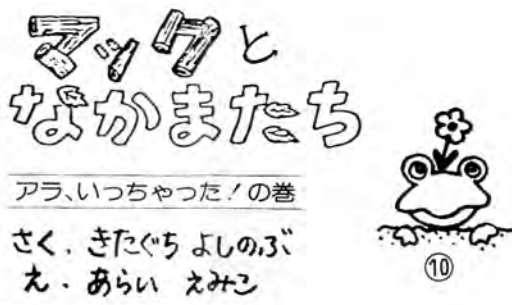 マックと
なかまたち
アラ、いっちゃった！の巻
さく．きたぐち よしのぶ
え．あらい えみこ
⑩